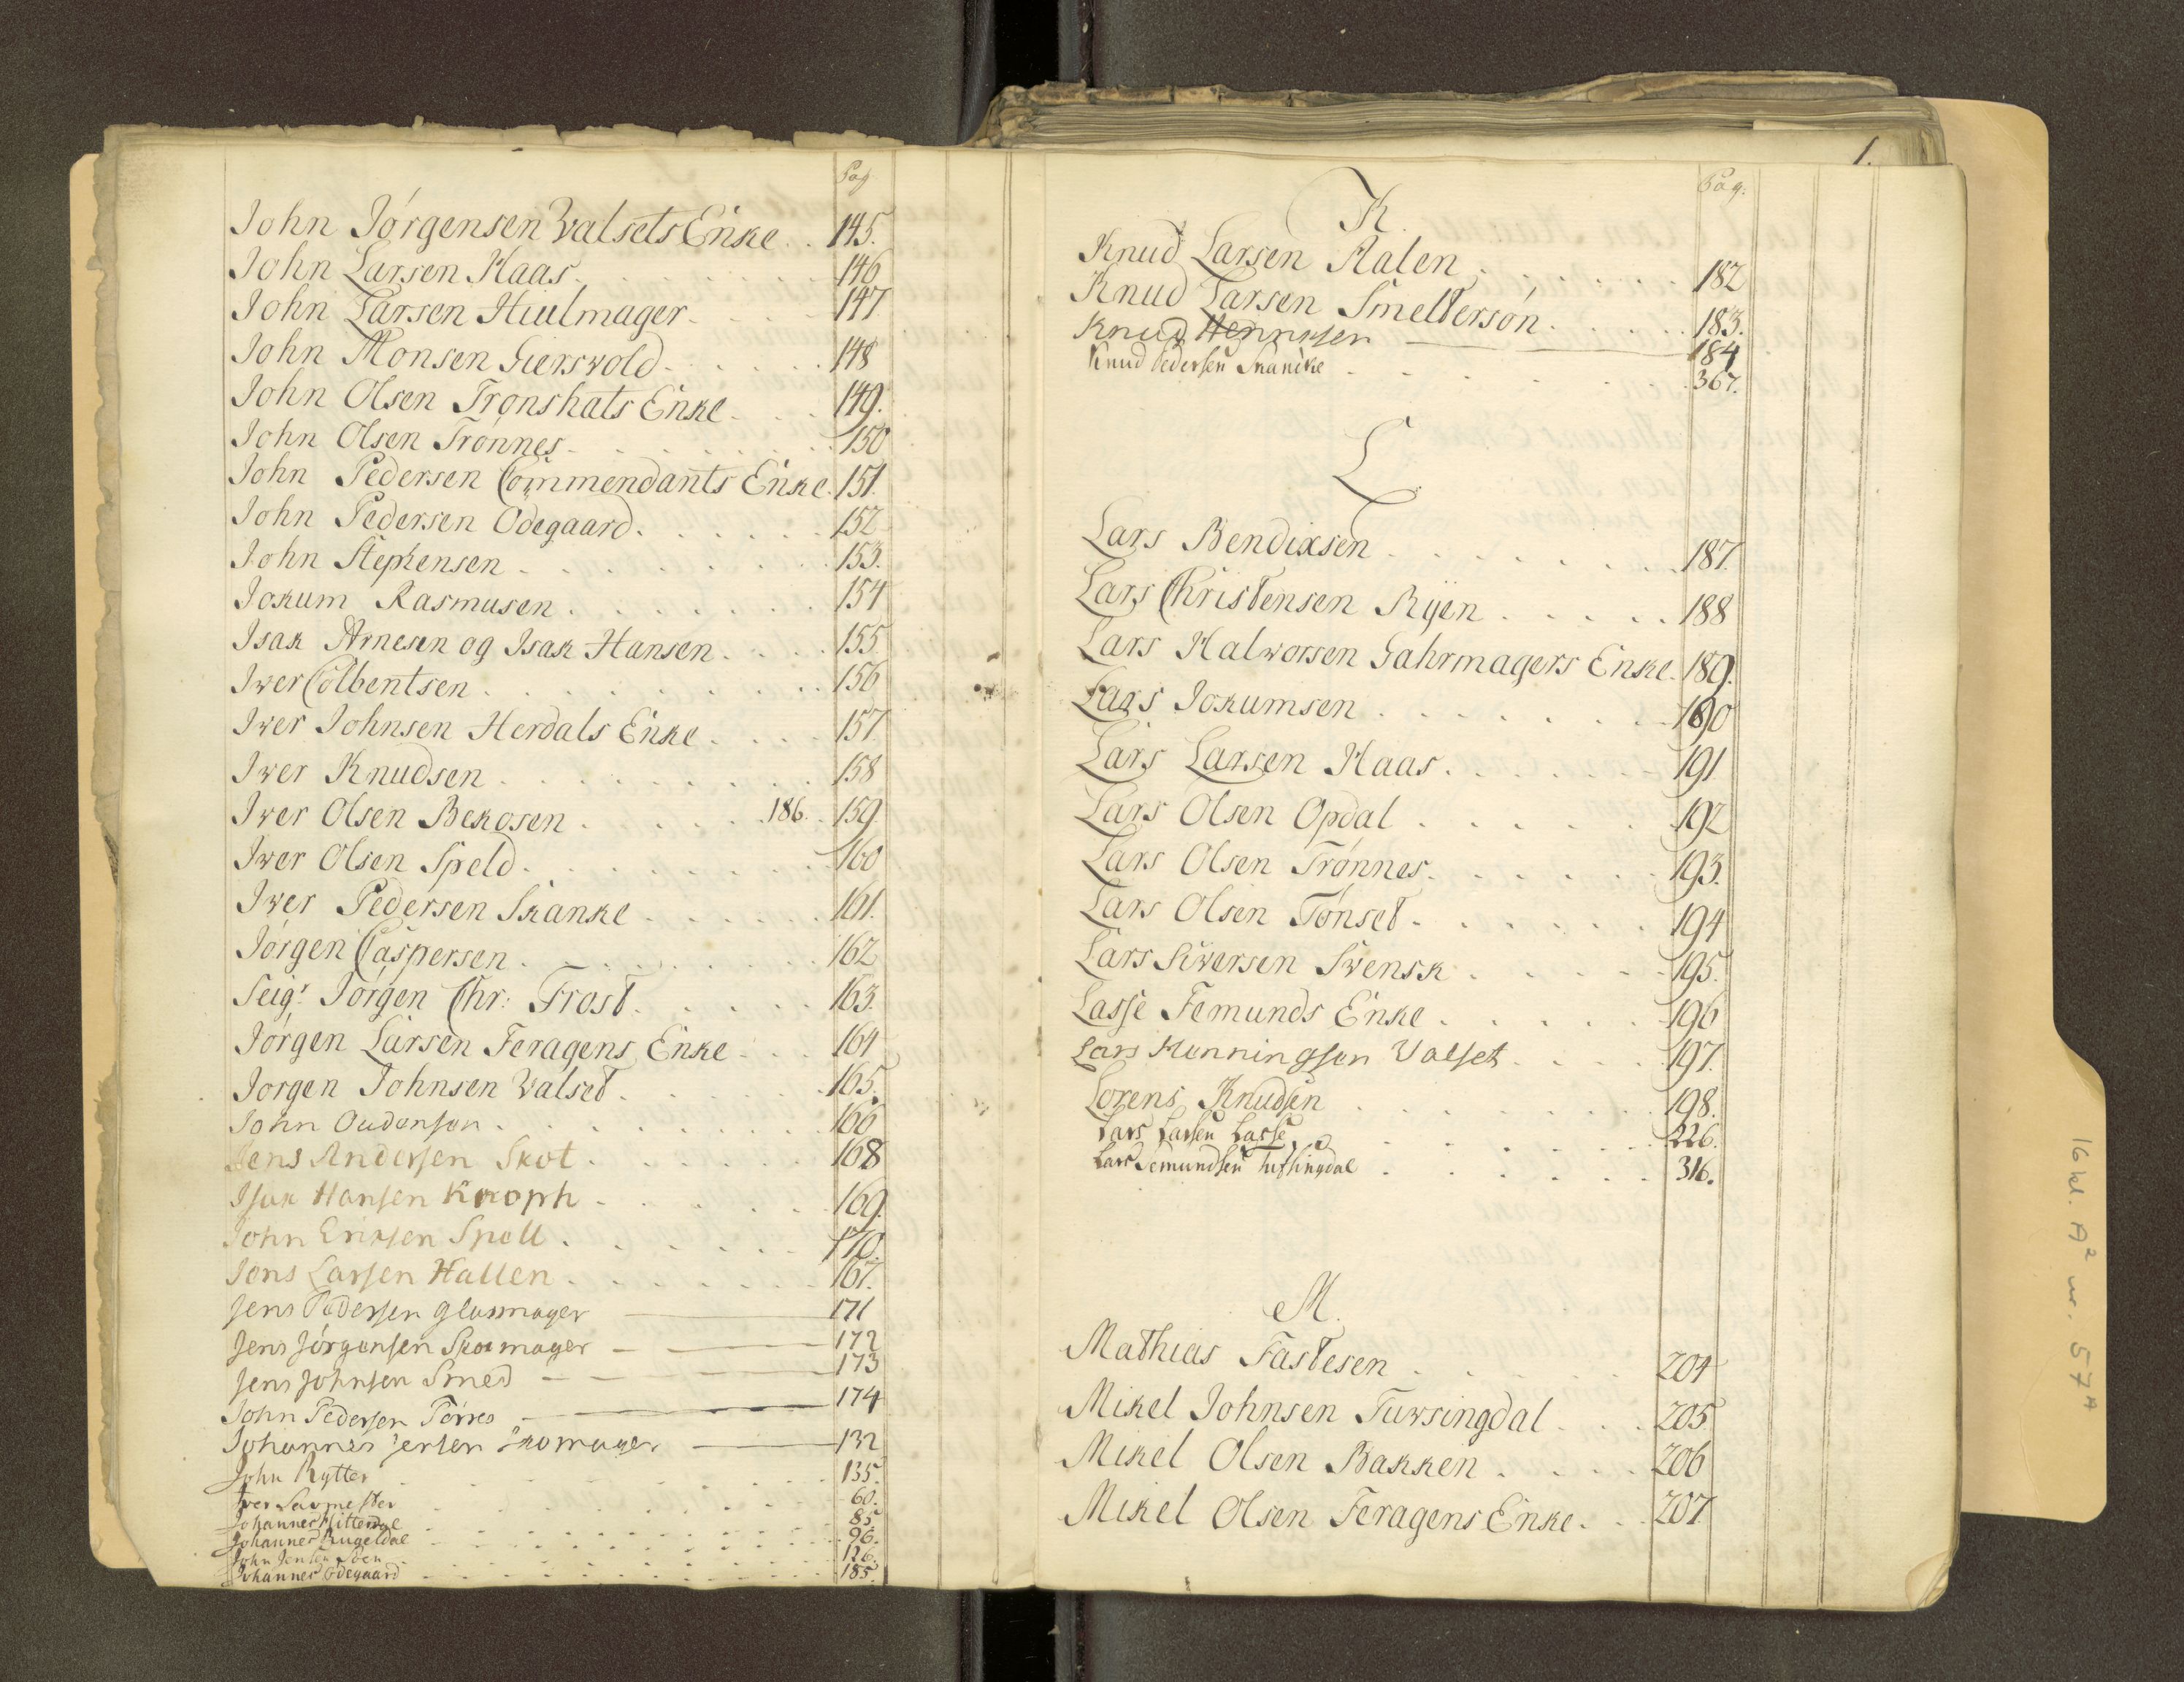 Pag
John Jórgensen Valsets Enke . . 145.
John Larsen Haas . . . . . . . 146
John Larsen Hiulmager . . . . 147
John Monsen Giersvold . . . . . . 148
John Olsen Tronshats Enke . . . 149.
John Olsen Trónnes . . . . . . . 150
John Pedersen Commendants Enke. 151.
John Pedersen Ödegaard . . . . . . 152
John Stephensen . . . . . . . . 153.
Jokum Rasmusen . . . . . . . 154
Isak Arnesen og Isak Hansen . . . . 155
Iver Colbentsen . . . . . . . . . 156
Iver Johnsen Herdals Enke . . . . 157
Iver Knudsen . . . . . . . . . 158
Iver Olsen Bekosen . . . . . 186. . 159
Iver Olsen Speld . . . . . . . . 160
Iver Pedersen Skanke . . . . . . 161.
Jórgen Caspersen . . . . . . . . 162
Seigr. Jórgen Chr: Frost . . . . . 163.
Jórgen Larsen Feragens Enke . . . 164
Jorgen Johnsen Valset . . . . . . 165.
John Oudensen . . . . . . . . 166
Jens Andersen Skot . . . . . . 168
Isak Hansen Kroph . . . . . . 169.
John Eriksen Spell . . . . . . . 170.
Jons Larsen Hallen . . . . . . . 167.
Jens Pedersen Glasmager — 171
Jens Jórgensen Skomager — 172
Jens Johnsen Smed — 173
John Pedersen Törres — 174
Johannes Jensen Skomager — 132
John Rytter . . . . . . . . 135.
Iver Savmester . . . . . . . 60.
Johannes Hitterdal . . . . . . . 85
Johannes Rugeldal . . . . . . . 96.
John Jensen Moen . . . . . . . 126.
Johannes Ödegaard . . . . . . . 185.
1.
Pag.
K.
Knud Larsen Aalen . . . . . . 182
Knud Larsen Smeltersón . . . . . 183.
Knud Henriksen — 184
Knud Pedersen Skancke . . . . . . 367.
L.
Lars Bendixsen . . . . . . . . 187.
Lars Christensen Ryen . . . . . 188
Lars Halvorsen Gahrmagers Enke. 189.
Lars Jokumsen . . . . . . . . 190
Lars Larsen Haas . . . . . . 191
Lars Olsen Opdal . . . . . . 192
Lars Olsen Trónnes . . . . . . 193.
Lars Olsen Tónset . . . . . . 194
Lars Siversen Svensk . . . . . 195.
Lasse Femunds Enke . . . . . . 196
Lars Henningsen Valset . . . . 197.
Lorens Knudsen . . . . . . . 198.
Lars Larsen Lasse . . . . . . . 226.
Lars Semundsen Tufsingdal . . . . . . 316.
M.
Mathias Fastesen . . . . . . 204
Mikel Johnsen Tuvsingdal . . . 205
Mikel Olsen Bakken . . . . . 206
Mikel Olsen Feragens Enke . . . 207
16 kl. A² nr. 57ᴬ